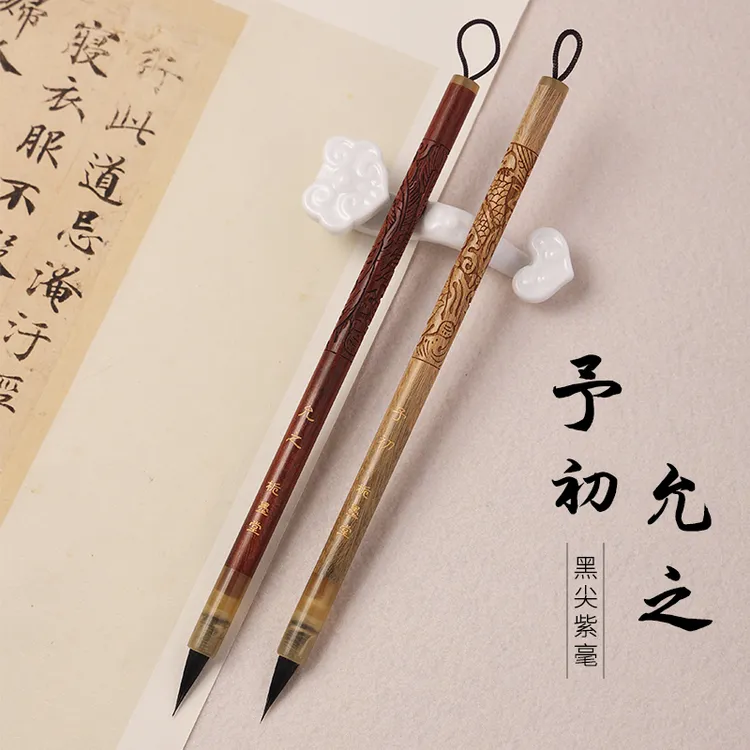 行此道忌淹汙
寢衣服不
婦
允之 栀墨堂
予初 栀墨堂
予初
允之
黑尖紫毫